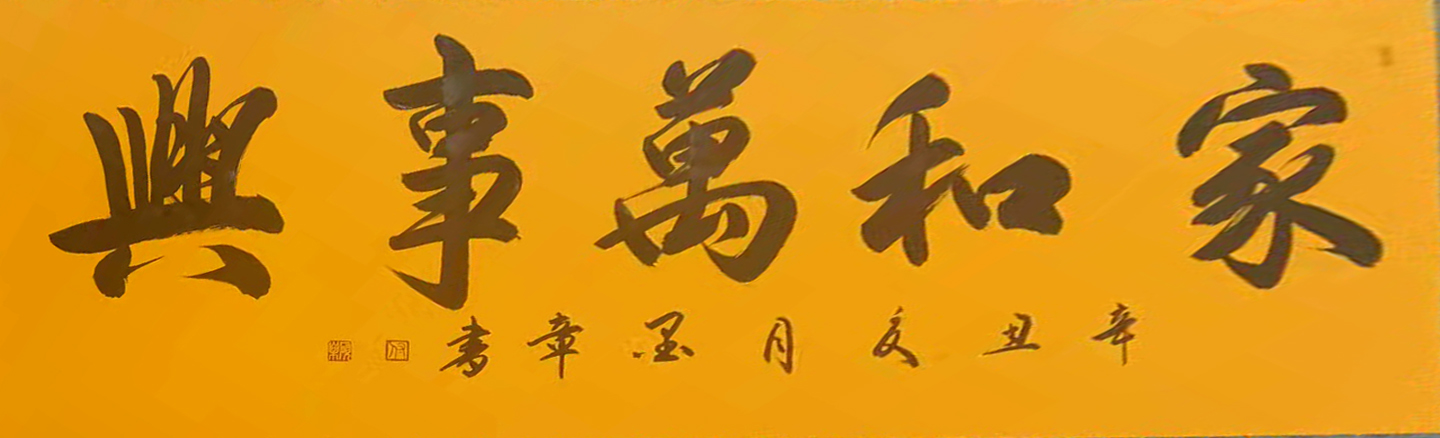 家和萬事興
辛丑亥月墨章書